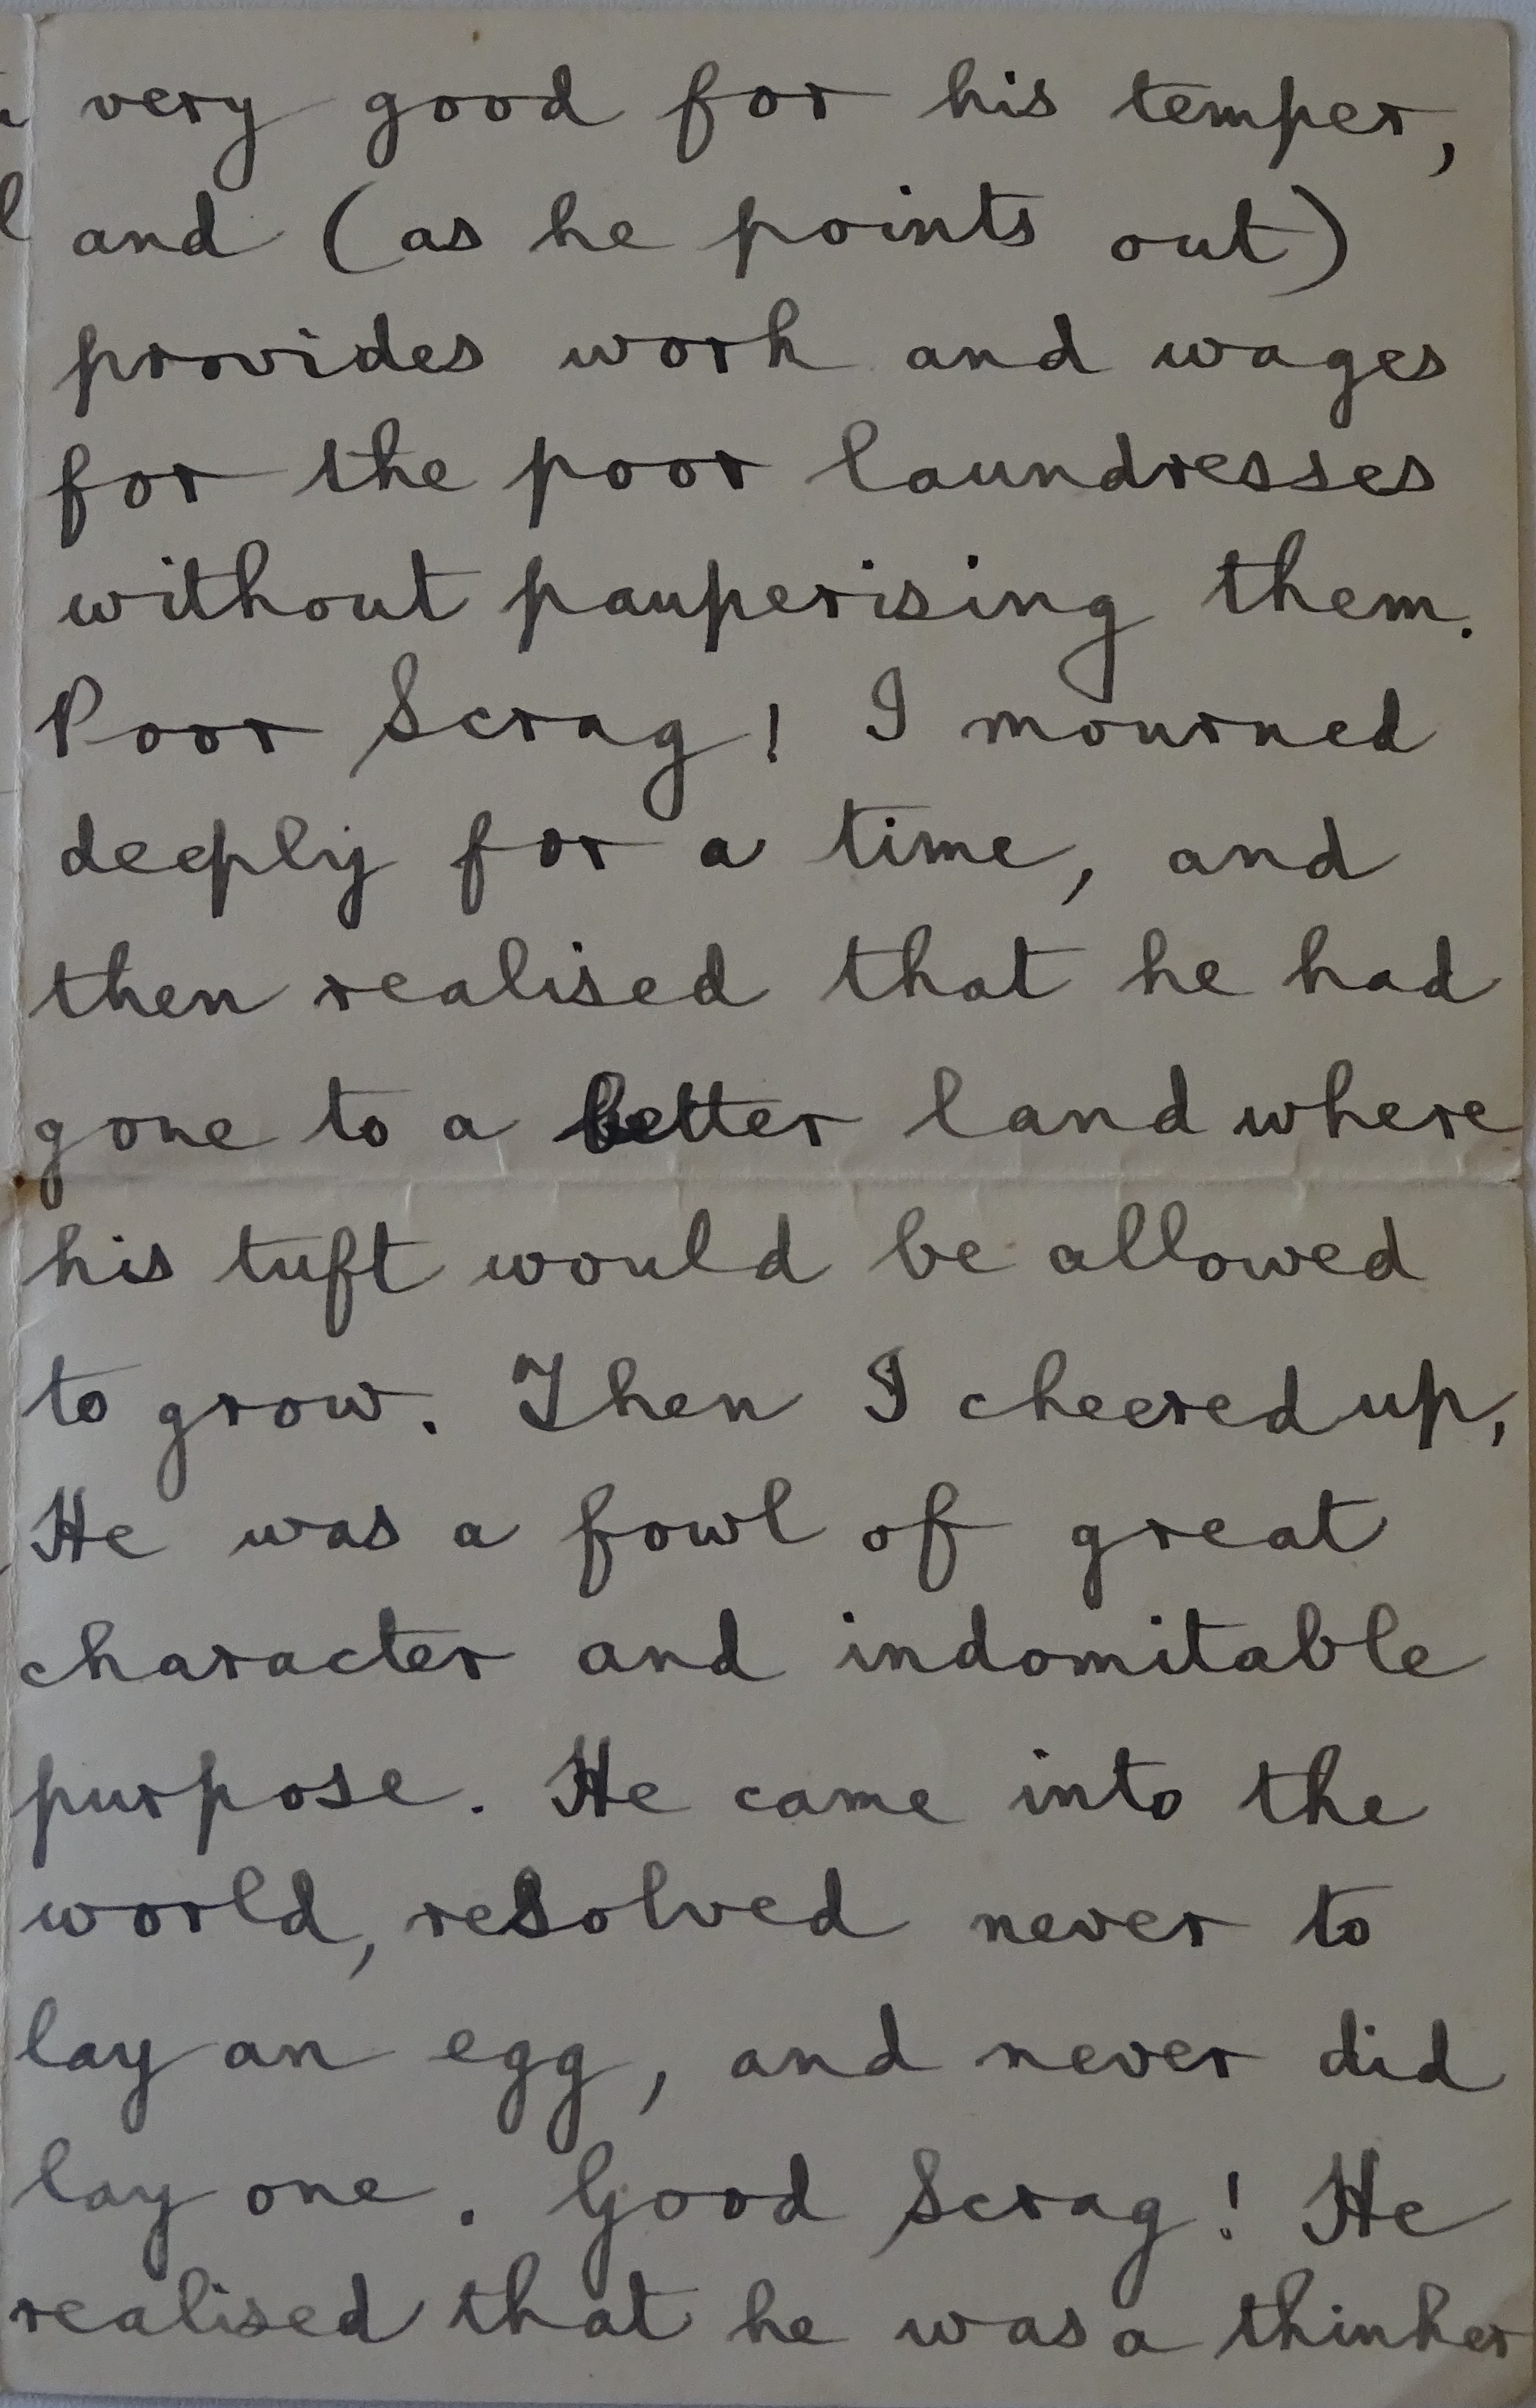 very good for his temper,
and (as he points out)
provides work and wages
for the poor laundresses
without pauperising them.
Poor Scrag! I mourned
deeply for a time, and
then realised that he had
gone to a better land where
his tuft would be allowed
to grow. Then I cheered up,
He was a fowl of great
character and indomitable
purpose. He came into the
world, resolved never to
lay an egg, and never did
lay one. Good Scrag! He
realised that he was a thinker